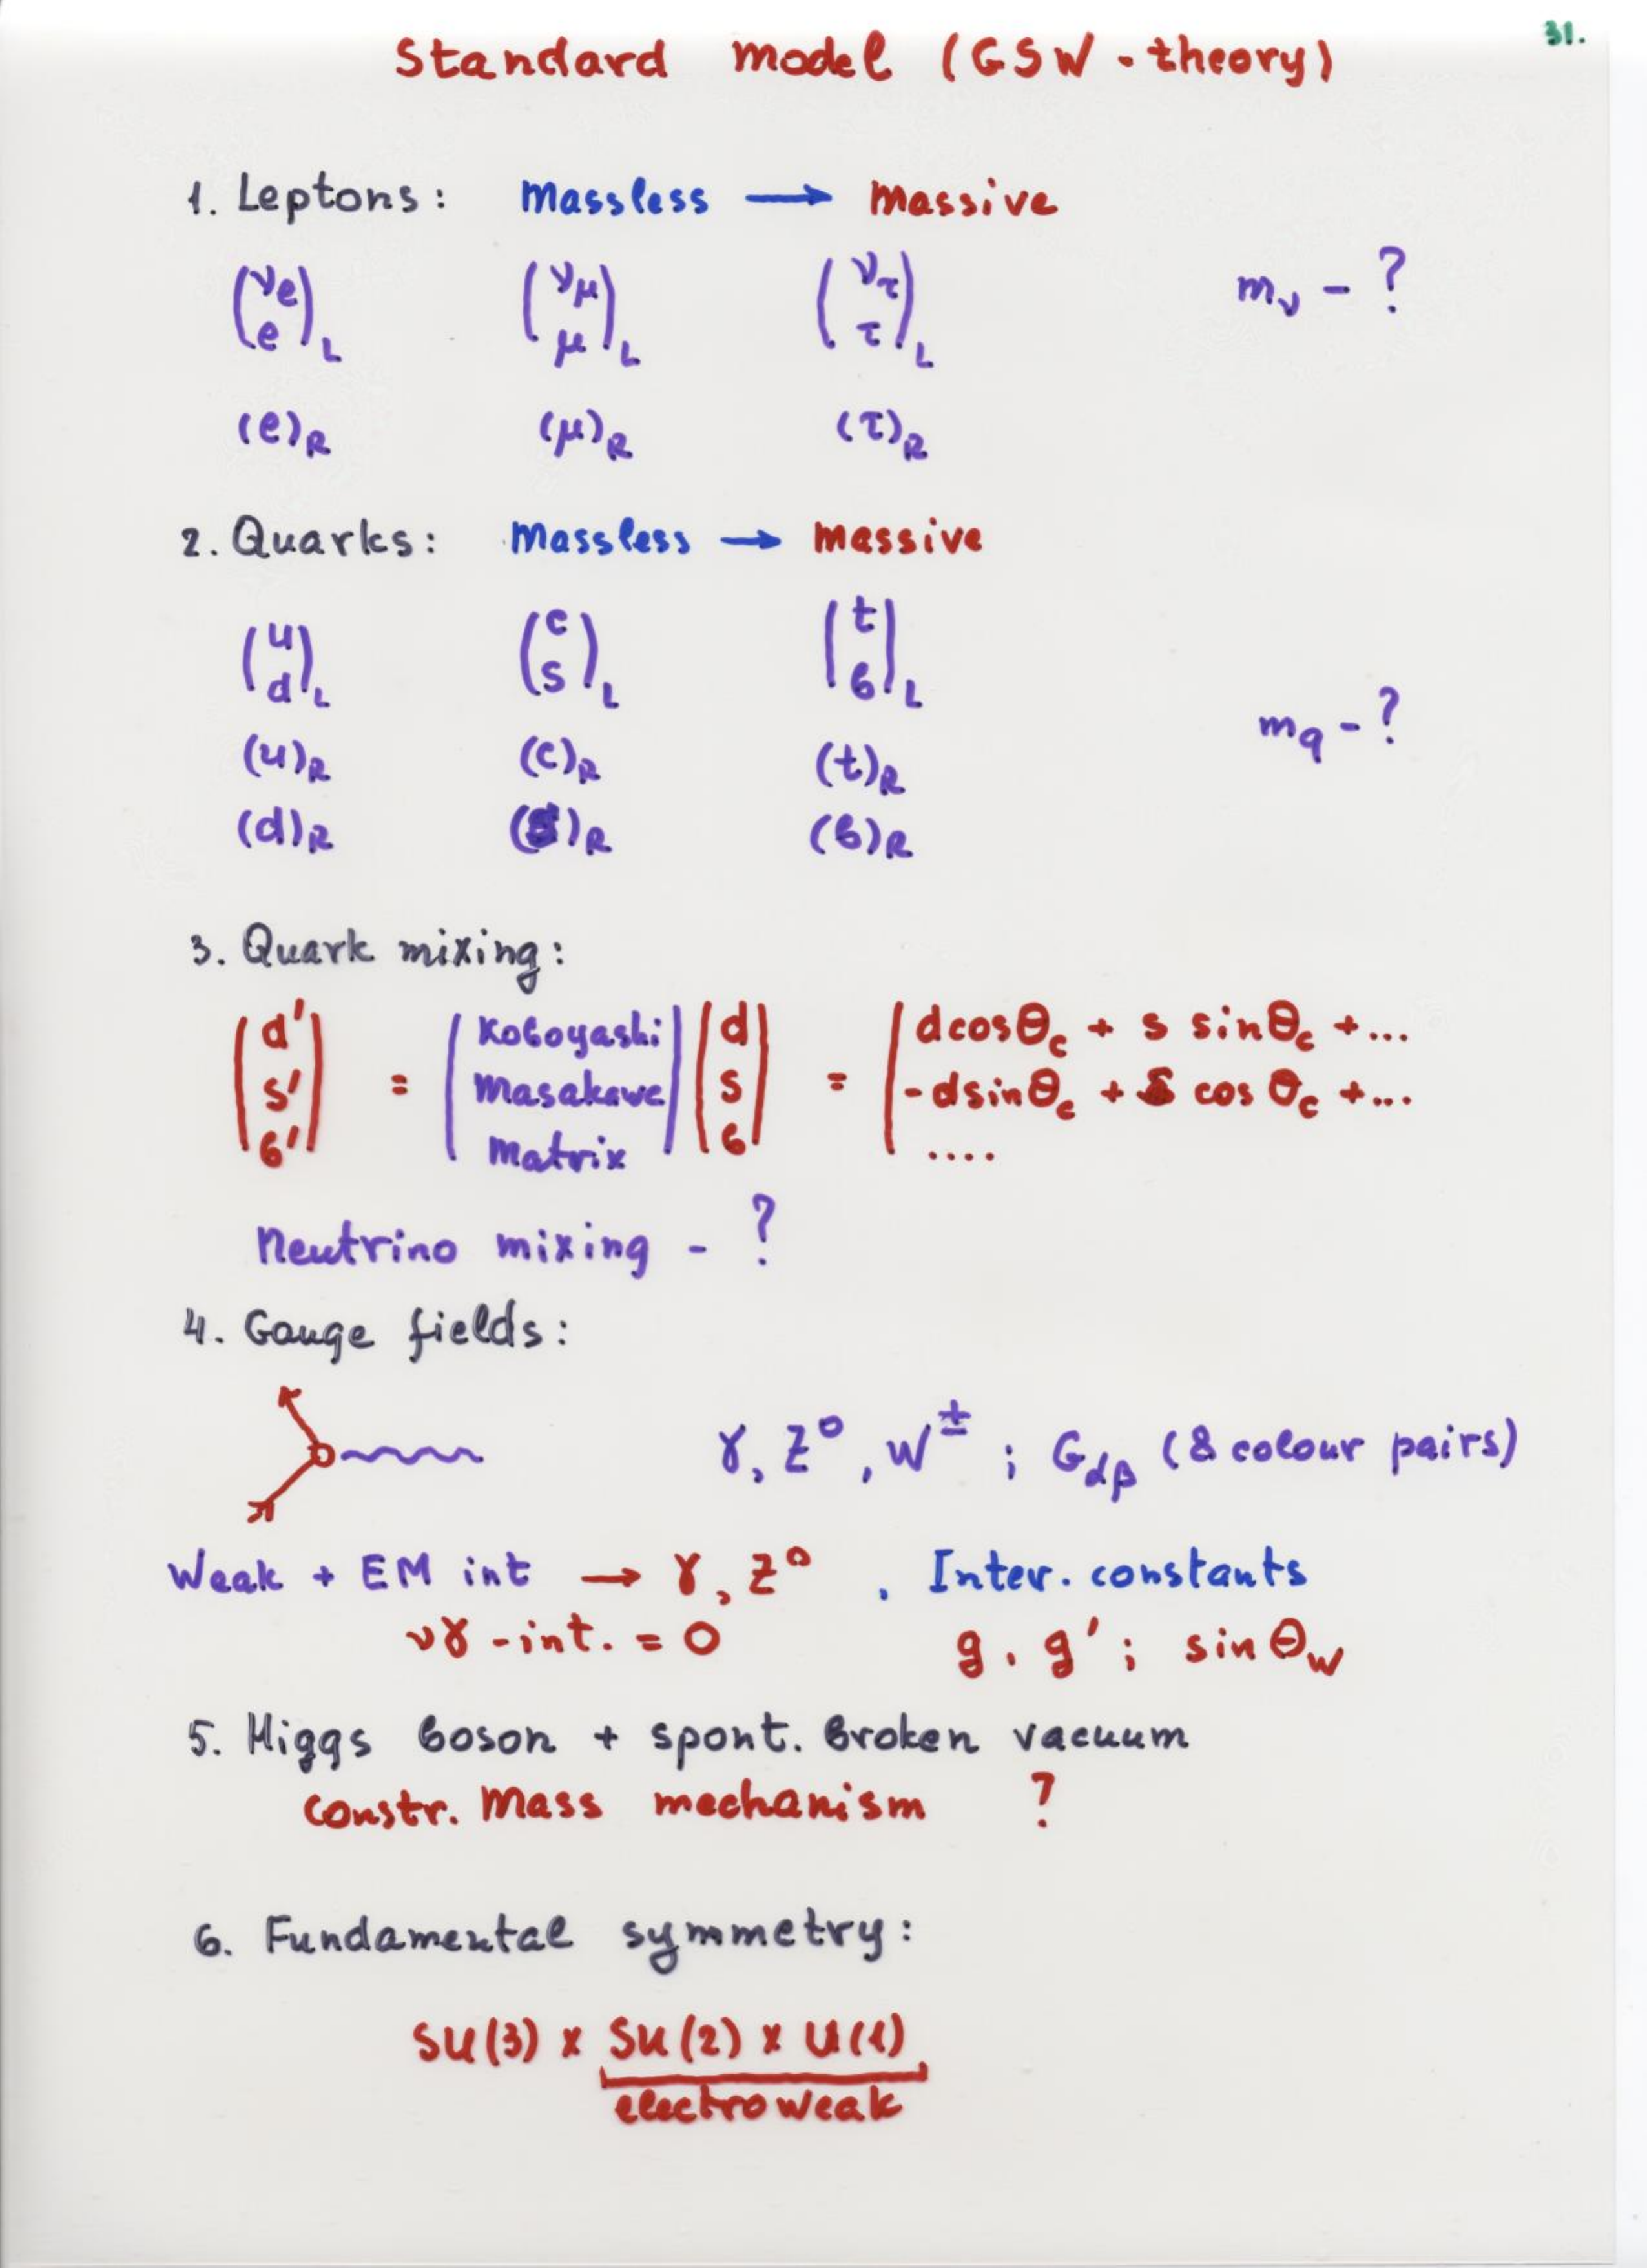 31.
Standard model (GSW - theory)
1. Leptons: massless → massive
(νe e)L (νμ μ)L (ντ τ)L mν - ?
(e)R (μ)R (τ)R
2. Quarks: massless → massive
(u d)L (c s)L (t b)L mq - ?
(u)R (c)R (t)R
(d)R (s)R (b)R
3. Quark mixing:
(d' s' b') = (Koboyashi Masakawa matrix) (d s b) = (d cosθc + s sinθc + ...
-d sinθc + s cosθc + ...
....
Neutrino mixing - ?
4. Gauge fields:
γ, Z⁰, W± ; Gαβ (8 colour pairs)
Weak + EM int → γ, Z⁰ , Inter. constants
νγ - int. = 0 g, g'; sinθW
5. Higgs boson + spont. broken vacuum
constr. mass mechanism ?
6. Fundamental symmetry:
SU(3) x SU(2) x U(1)
electroweak